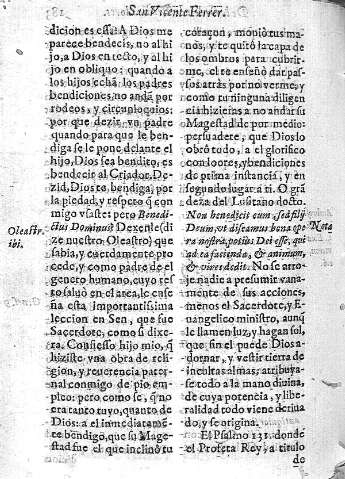 San Vicente Ferrer.
dicion es esta: A Dios me
parece bendecis, no al hi-
jo, a Dios en recto, y al hi-
jo en obliquo: quando a
los hijos echã los padres
bendiciones no andã por
rodeos, y circunloquios:
por que dezir vn padre
quando para que le ben-
diga se le pone delante el
hijo, Dios sea bendito, es
bendecir al Criador. De-
zid, Dios te bendiga, por
la piedad, y respeto q̃ con
migo vsaste: pero Benedi-
ctus Dominus? Dexenle (di
ze nuestro Oleastro) que
sabia, y cuerdamente pro
cede, y como padre de el
genero humano, cuyo res
to saluò en el arca, le ense
ña esta importantissima
leccion en Sen, que fue
Sacerdote, como si dixe-
ra. Confiesso hijo mio, q̃
hiziste vna obra de reli-
gion, y reuerencia pater-
nal conmigo de pio em-
pleo: pero como se, q̃ no
era tanto tuyo, quanto de
Dios: a el inmediatamẽ-
te bendigo, que su Mage-
stad fue el que inclinò tu
Oleastr.
ibi.
coraçon, mouiò tus ma-
nos, y te quitò la capa de
los ombros para cubrir-
me, el te enseñò dar pas-
sos atràs por no verme, y
como tu ninguna diligen
cia hizieras a no andar su
Magestad de por medio:
persuadete, que Dios lo
obrò todo, a el glorifico
con loores, y bendiciones
de prima instancia, y en
segundo lugar a ti. O gran
deza del Lusitano docto.
Non benedicit eum, sed filij
Deum, vt discamus bona ope
ra nostra, potius Dei esse, qui
ad ea facienda, & animum,
& vires dedit. No se arro-
je nadie a presumir vana-
mente de sus acciones,
menos el Sacerdote, y E-
uangelico ministro, aunq̃
le llamen luz, y hagan sol,
que sin el puede Dios a-
dornar, y vestir tierra de
incultas almas, atribuya-
se todo a la mano diuina,
de cuya potencia, y libe-
ralidad todo viene deriua
do, y se origina.
El Psalmo 131. donde
el Profeta Rey, a titulo
de
Nota